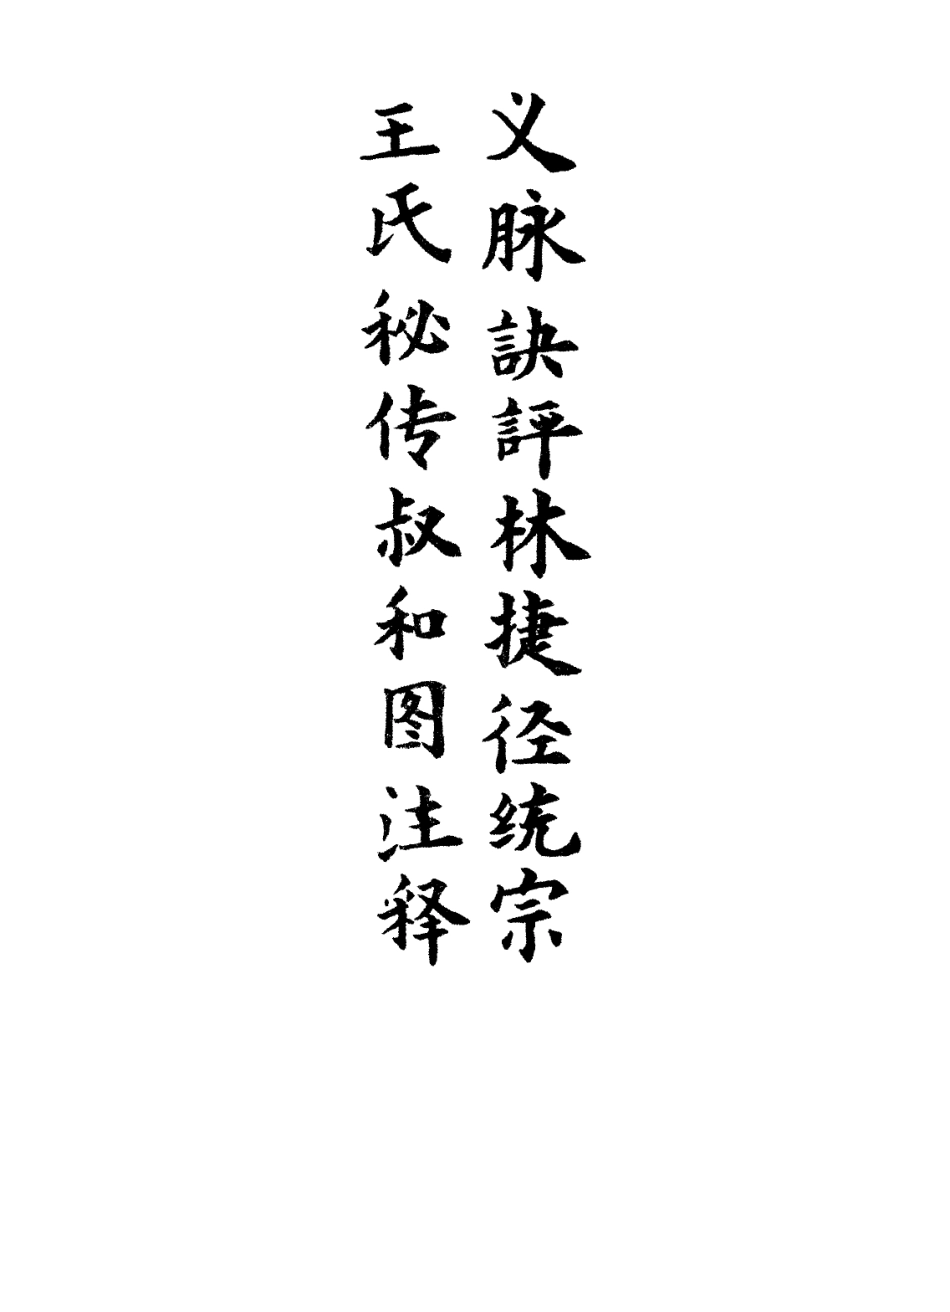 王氏秘传叔和图注释
义脉訣評林捷径统宗